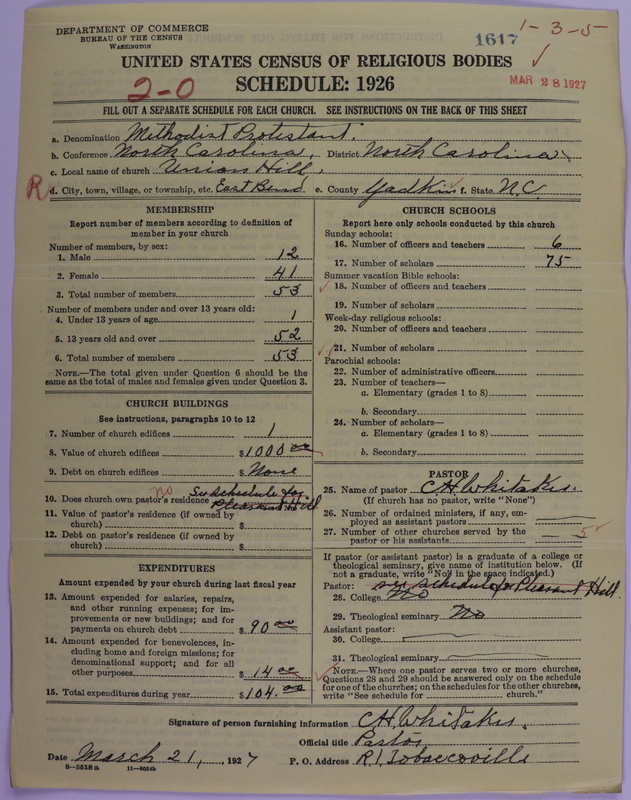 DEPARTMENT OF COMMERCE
BUREAU OF THE CENSUS
WASHINGTON
1617
1-3-5
UNITED STATES CENSUS OF RELIGIOUS BODIES
MAR 28 1927
2-0
SCHEDULE: 1926
FILL OUT A SEPARATE SCHEDULE FOR EACH CHURCH. SEE INSTRUCTIONS ON THE BACK OF THIS SHEET
a. Denomination Methodist Protestant.
b. Conference North Carolina, District North Carolina
c. Local name of church Union Hill,
R d. City, town, village, or township, etc. East Bend e. County Yadkin f. State N.C.
MEMBERSHIP
Report number of members according to definition of
member in your church
Number of members, by sex:
1. Male 12
2. Female 41
3. Total number of members 53
Number of members under and over 13 years old:
4. Under 13 years of age 1
5. 13 years old and over 52
6. Total number of members 53
NOTE.—The total given under Question 6 should be
same as the total of males and females given under Question 3.
CHURCH BUILDINGS
See instructions, paragraphs 10 to 12
7. Number of church edifices 1
8. Value of church edifices $1000 00
9. Debt on church edifices $None
10. Does church own pastor's residence no See schedule for
Pleasant Hill
11. Value of pastor's residence (if owned by
church) $
12. Debt on pastor's residence (if owned by
church) $
EXPENDITURES
Amount expended by your church during last fiscal year
13. Amount expended for salaries, repairs,
and other running expenses; for im-
provements or new buildings; and for
payments on church debt $90 00
14. Amount expended for benevolences, in-
cluding home and foreign missions; for
denominational support; and for all
other purposes $14 00
15. Total expenditures during year $104.00
CHURCH SCHOOLS
Report here only schools conducted by this church
Sunday schools:
16. Number of officers and teachers 6
17. Number of scholars 75
Summer vacation Bible schools:
18. Number of officers and teachers
19. Number of scholars
Week-day religious schools:
20. Number of officers and teachers
21. Number of scholars
Parochial schools:
22. Number of administrative officers
23. Number of teachers—
a. Elementary (grades 1 to 8)
b. Secondary
24. Number of scholars—
a. Elementary (grades 1 to 8)
b. Secondary
PASTOR
25. Name of pastor C H Whitaker.
(If church has no pastor, write "None")
26. Number of ordained ministers, if any, em-
ployed as assistant pastors
27. Number of other churches served by the
pastor or his assistants 5
If pastor (or assistant pastor) is a graduate of a college or
theological seminary, give name of institution below. (If
not a graduate, write "No" in the space indicated.)
Pastor: see schedule for Pleasant Hill
28. College No
29. Theological seminary No
Assistant pastor:
30. College
31. Theological seminary
NOTE.—Where one pastor serves two or more churches,
Questions 28 and 29 should be answered only on the schedule
for one of the churches; on the schedules for the other churches,
write "See schedule for church."
Signature of person furnishing information C H Whitaker.
Official title Pastor
Date March 21, , 1927 P. O. Address R.1. Tobaccoville
8-5518a 11-9024b